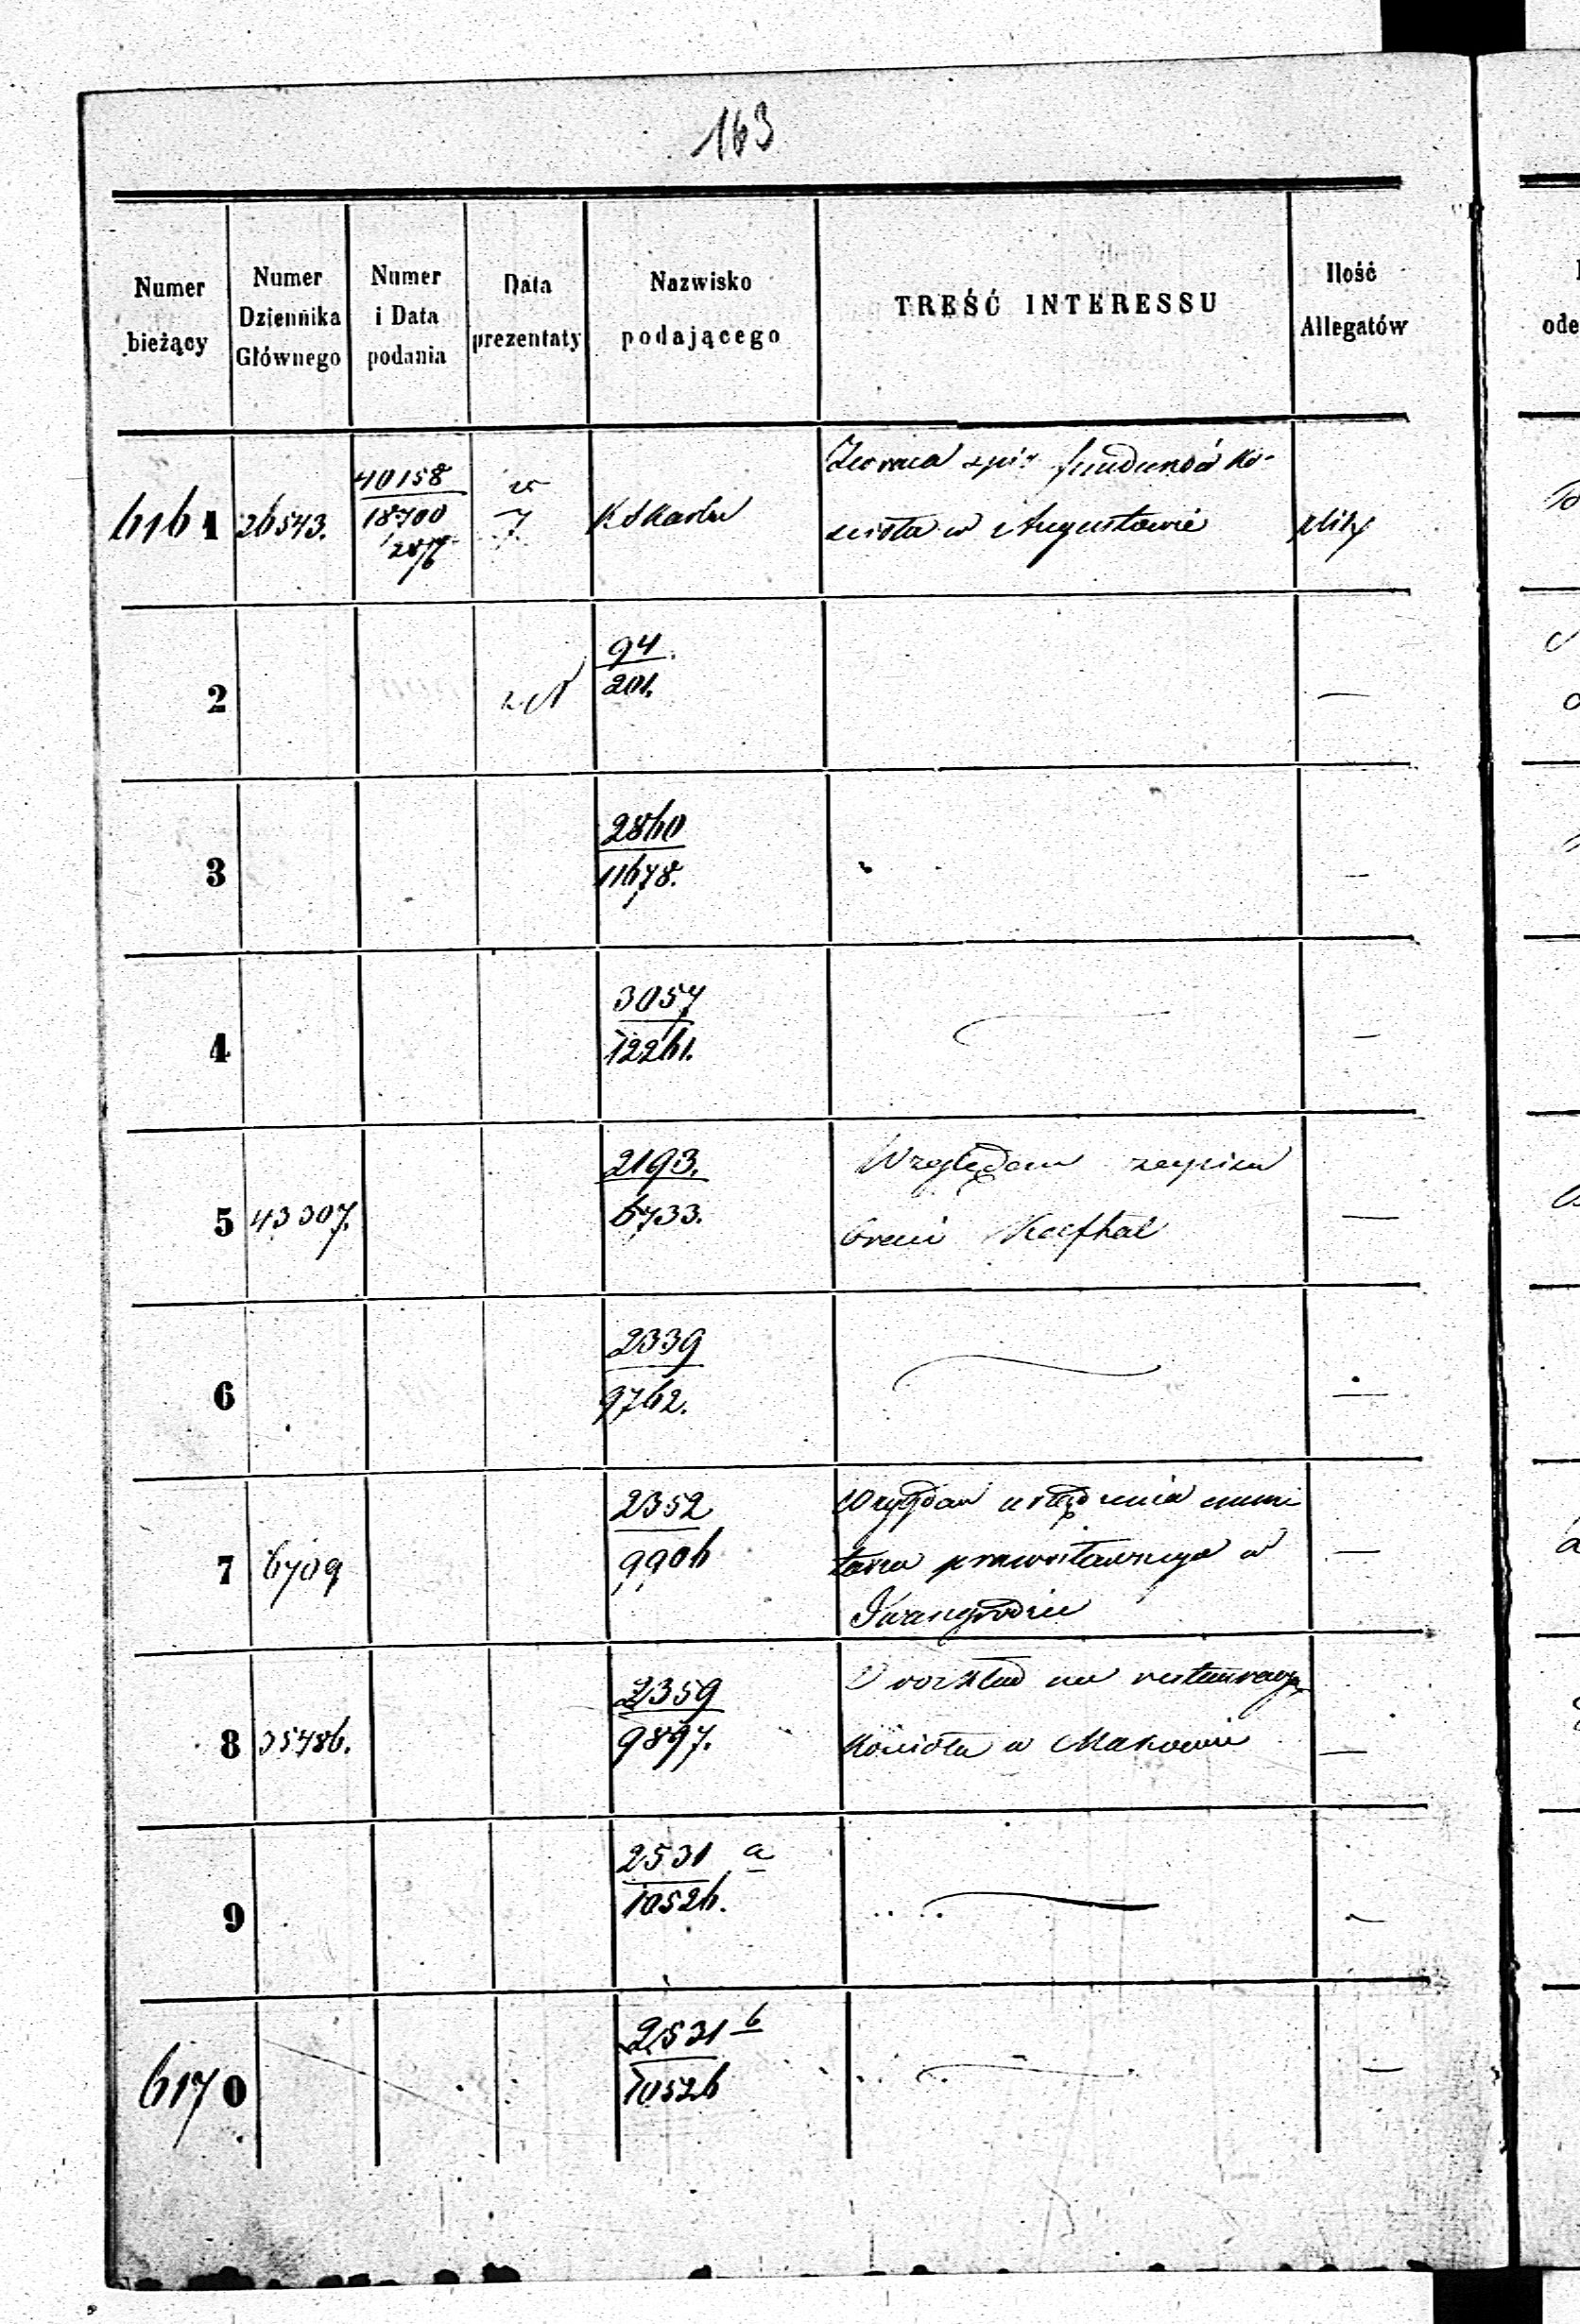 163
Numer bieżący
Numer Dziennika Głównego
Numer i Data podania
Data prezentaty
Nazwisko podającego
TREŚĆ INTERESSU
Ilość Allegatów
6161
26543.
40158
18700
28/6
7
Zwraca fundunsów Ko-
ścioła w Augustowie
2
94
201.
—
3
2860
11678.
—
4
3057
12261.
—
5
43307.
2193.
6733.
Względem zapisu
braci
—
6
2339
9762.
—
7
6709
2352
9906
Względem urządzenia cmen
tarza prawosławnego w
Iwangrodzie
—
8
35486.
2359
9897.
rozkład na restauracyą
Kościoła w Makowie
—
9
2531 a
10526.
—
6170
2531 b
10526
—